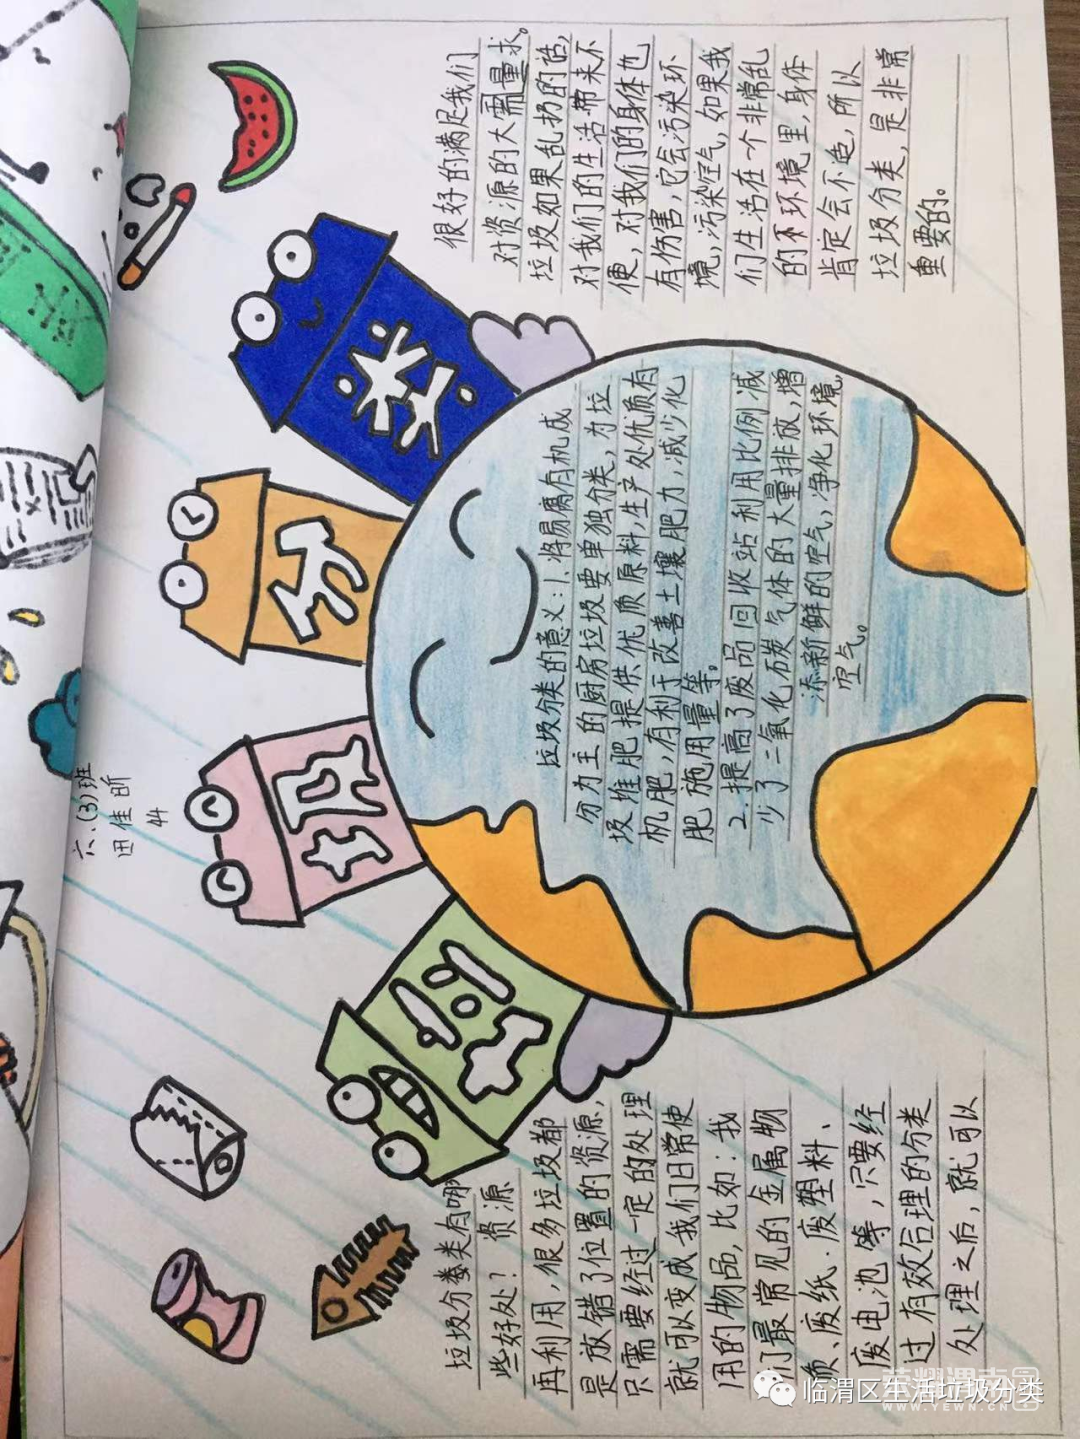 六.(3)班
田佳昕
垃圾分类
垃圾分类类有哪
些好处? 资源
再利用,很多垃圾都
是放错了位置的资源,
只需要经过一定的处理
就可以变成我们日常使
用的物品,比如:我
们最常见的金属物
质、废纸.废塑料、
废电池等,只要经
过有效合理的分类
处理之后,就可以
很好的满足我们
对资源的大需量求。
垃圾如果乱扔的话,
对我们的生活带来不
便,对我们的身体也
有伤害,它会污染环
境,污染空气,如果我
们生活在一个非常乱
的环境里,身体
肯定会不适,所以
垃圾分类,是非常
重要的。
垃圾分类的意义:1.将易腐有机成
分为主的厨房垃圾要单独分类,为垃
圾堆肥提供优质原料,生产处优质有
机肥,有利于改善土壤肥力,减少化
肥施用量等。
2.提高了废品回收站利用比例减
少了二氧化碳气体的大量排放,增
添新鲜的空气,净化环境,
空气。
临渭区生活垃圾分类
荣耀渭南
WWW.YEWN.CN